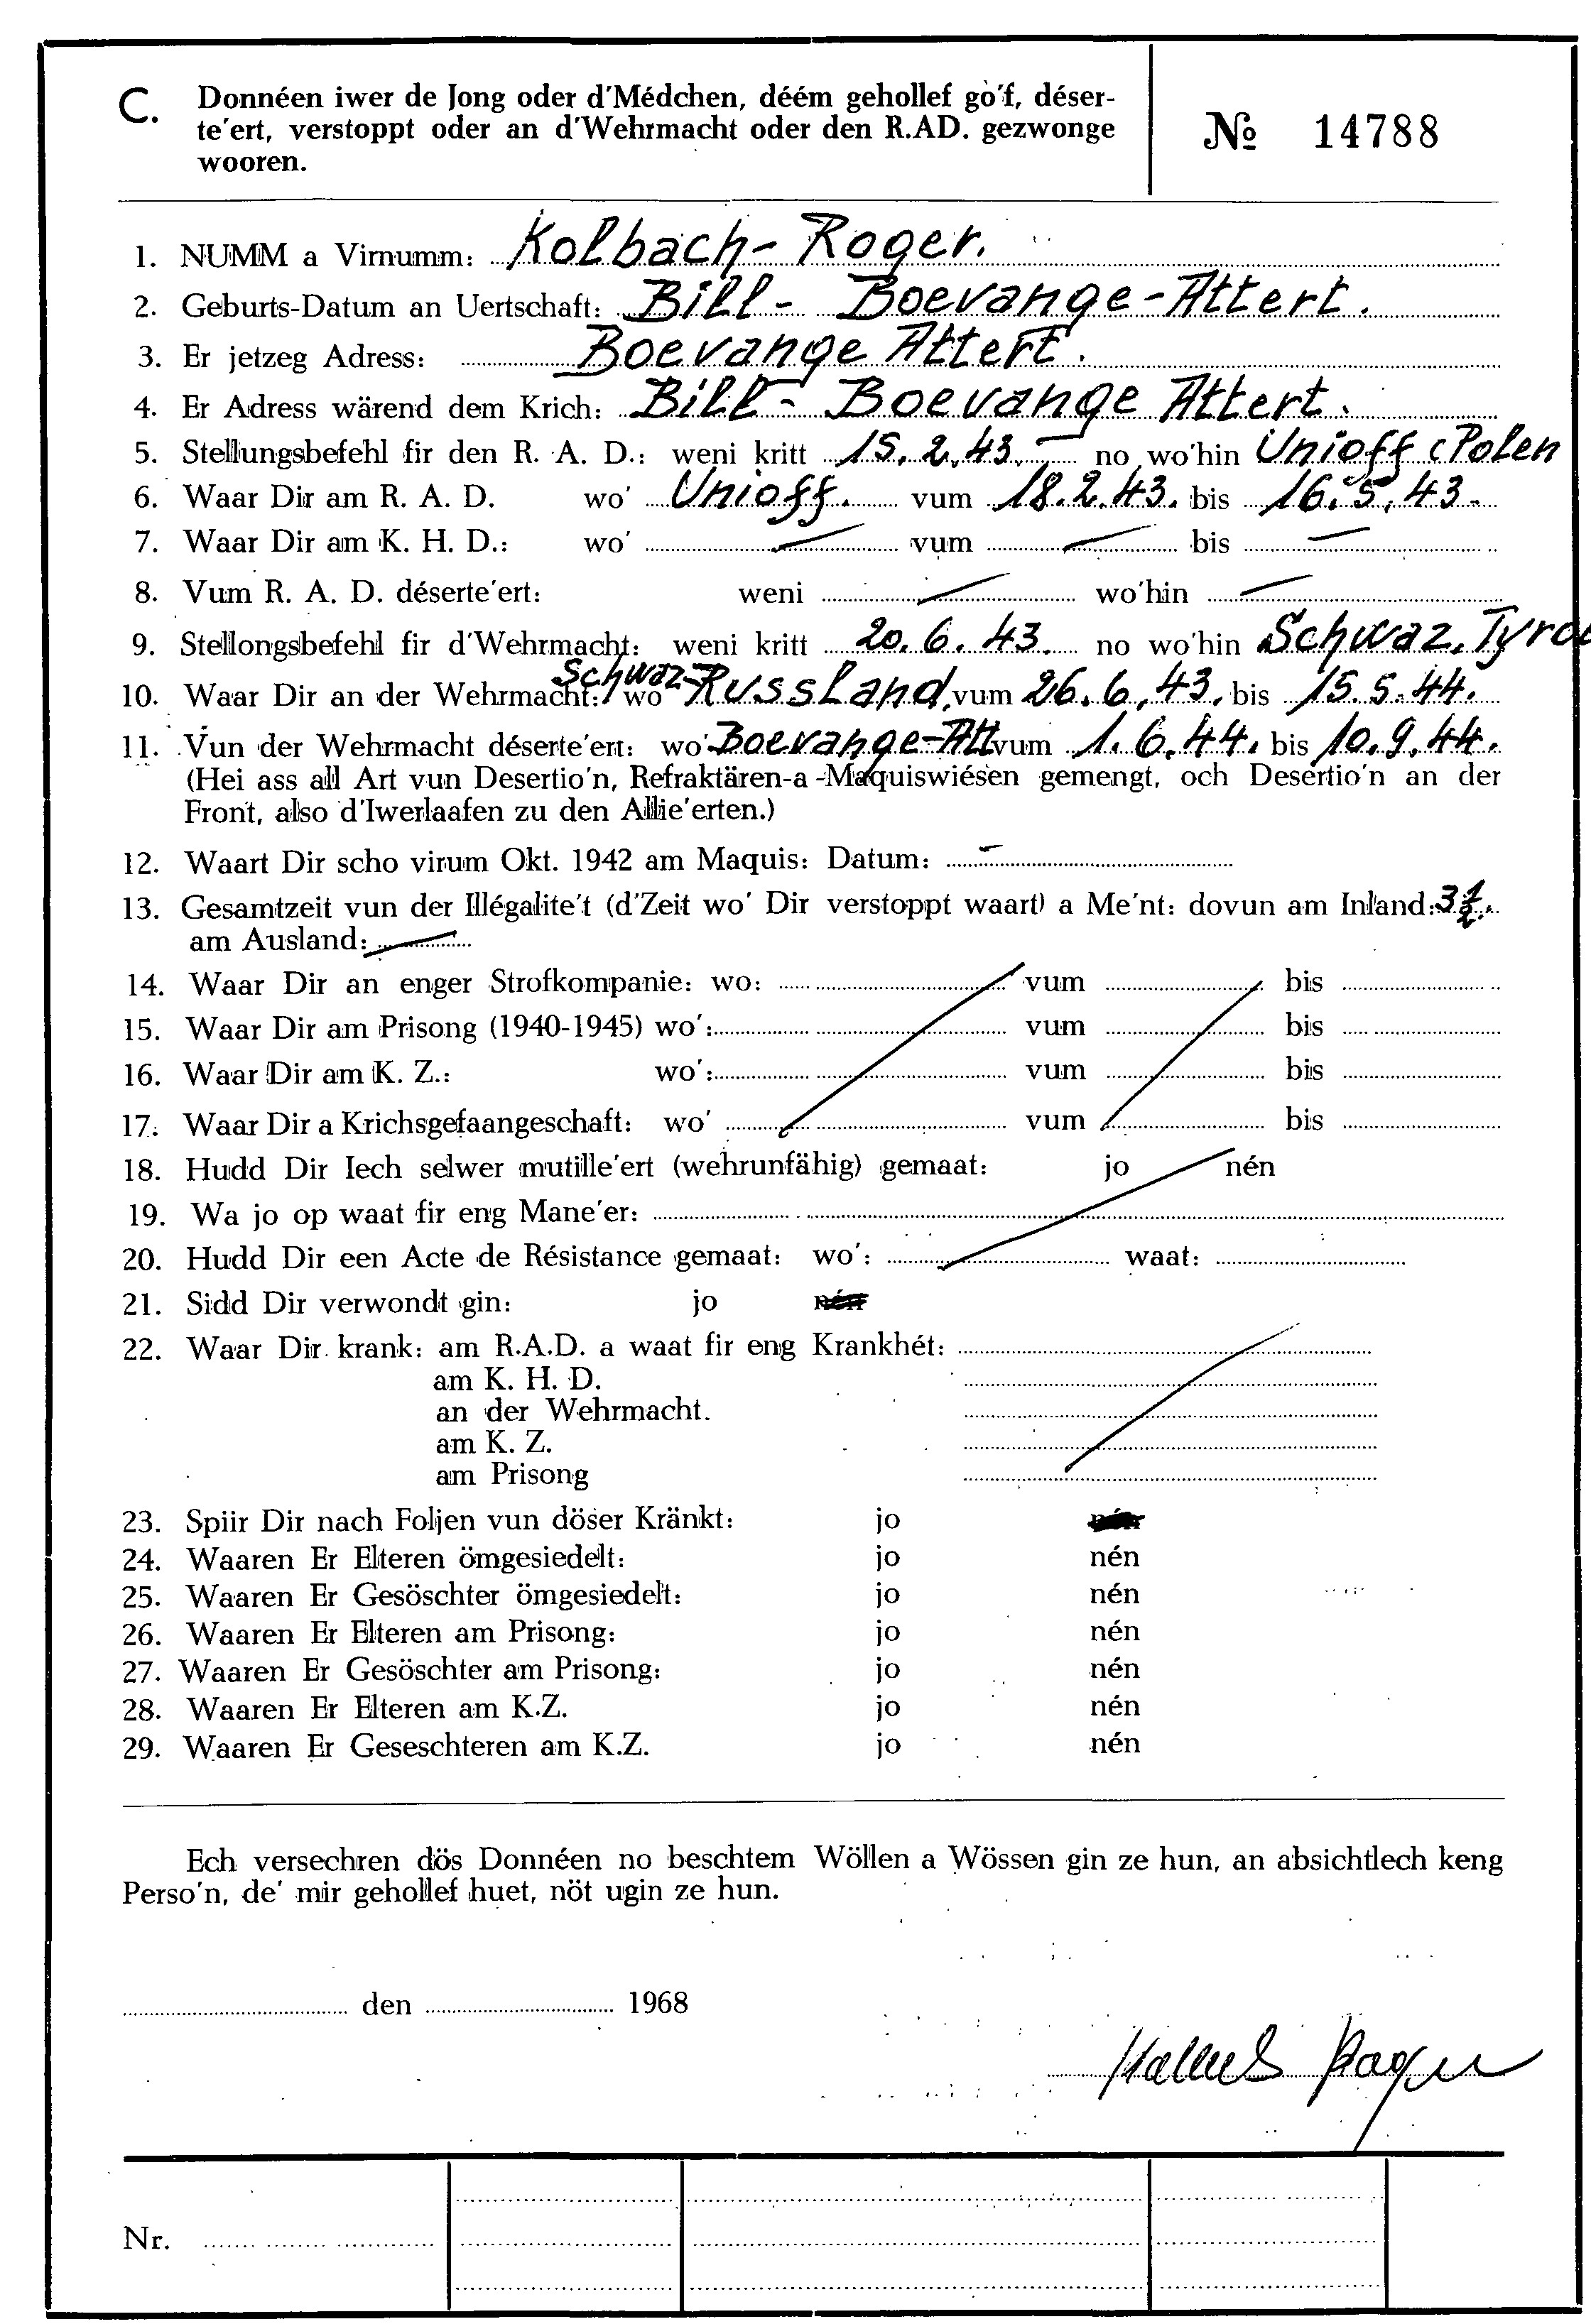 C. Donnéen iwer de Jong oder d'Médchen, déém gehollef go'f, déser-
te'ert, verstoppt oder an d'Wehrmacht oder den R.AD. gezwonge
wooren.
№ 14788
1. NUMM a Virnumm: Kolbach - Roger.
2. Geburts-Datum an Uertschaft: Bill - Boevange-Attert.
3. Er jetzeg Adress: Boevange Attert.
4. Er Adress wärend dem Krich: Bill - Boevange Attert.
5. Stellungsbefehl fir den R. A. D.: weni kritt 15.2.43. no wo'hin Unioff (Polen
6. Waar Dir am R. A. D. wo' Unioff. vum 18.2.43. bis 16.5.43.
7. Waar Dir am K. H. D.: wo' — vum — bis —
8. Vum R. A. D. déserte'ert: weni — wo'hin —
9. Stellongsbefehl fir d'Wehrmacht: weni kritt 20.6.43. no wo'hin Schwaz, Tyrol
10. Waar Dir an der Wehrmacht: wo Schwaz-Russland, vum 26.6.43. bis 15.5.44.
11. Vun der Wehrmacht déserte'ert: wo' Boevange-Att vum 1.6.44. bis 10.9.44.
(Hei ass all Art vun Desertio'n, Refraktären-a -Maquiswiésen gemengt, och Desertio'n an der
Front, also d'Iwerlaafen zu den Allie'erten.)
12. Waart Dir scho virum Okt. 1942 am Maquis: Datum: -
13. Gesamtzeit vun der Illégalite't (d'Zeit wo' Dir verstoppt waart) a Me'nt: dovun am Inland: 3½.
am Ausland: —
14. Waar Dir an enger Strofkompanie: wo: vum bis
15. Waar Dir am Prisong (1940-1945) wo': vum bis
16. Waar Dir am K. Z.: wo': vum bis
17. Waar Dir a Krichsgefaangeschaft: wo' vum bis
18. Hudd Dir Iech selwer mutille'ert (wehrunfähig) gemaat: jo nén
19. Wa jo op waat fir eng Mane'er:
20. Hudd Dir een Acte de Résistance gemaat: wo': waat:
21. Sidd Dir verwondt gin: jo nén
22. Waar Dir krank: am R.A.D. a waat fir eng Krankhét:
am K. H. D.
an der Wehrmacht.
am K. Z.
am Prisong
23. Spiir Dir nach Foljen vun döser Kränkt: jo nén
24. Waaren Er Elteren ömgesiedelt: jo nén
25. Waaren Er Gesöschter ömgesiedelt: jo nén
26. Waaren Er Elteren am Prisong: jo nén
27. Waaren Er Gesöschter am Prisong: jo nén
28. Waaren Er Elteren am K.Z. jo nén
29. Waaren Er Geseschteren am K.Z. jo nén
Ech versechren dös Donnéen no beschtem Wöllen a Wössen gin ze hun, an absichtlech keng
Perso'n, de' mir gehollef huet, nöt ugin ze hun.
den 1968
Nr.